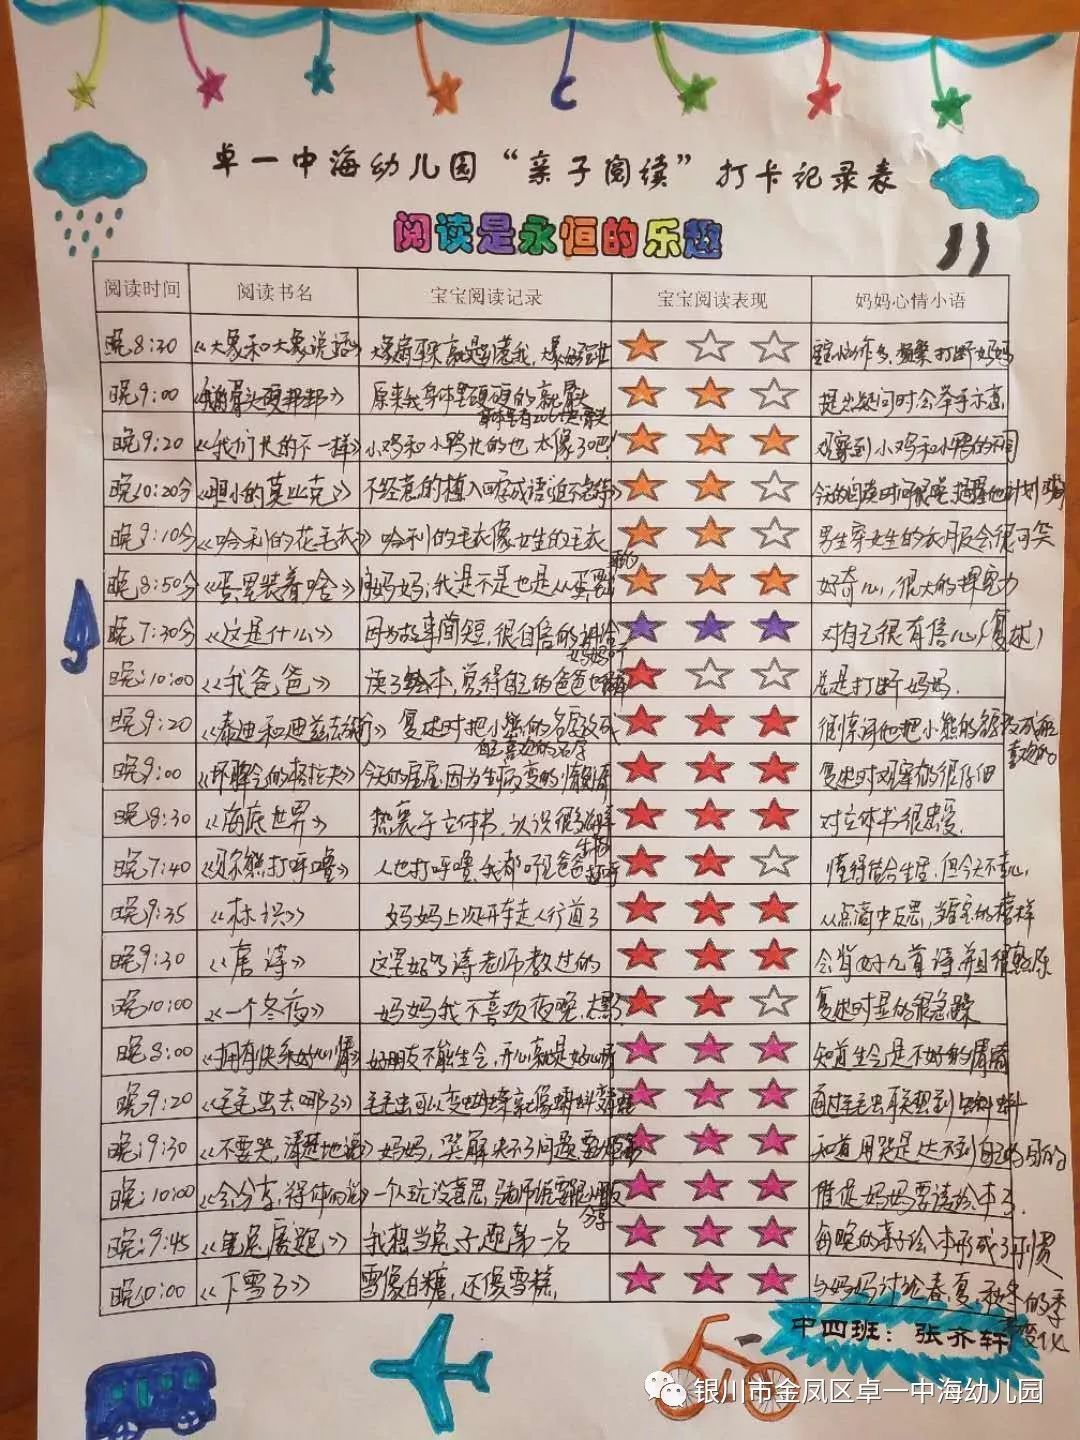 卓一中海幼儿园“亲子阅读”打卡记录表
阅读是永恒的乐趣
11
阅读时间 阅读书名 宝宝阅读记录 宝宝阅读表现 妈妈心情小语
晚8:30 《大象和大象说话》
晚9:00 《我的骨头硬邦邦》 原来我身体里硬硬的就是骨头 提出疑问时会举手示意
身体里有206块骨头
晚9:20 《我们长的不一样》 小鸡和小鸭长的也太像了吧! 观察到小鸡和小鸭的不同
晚10:20分 《胆小的莫比克》 不经意的植入四字成语
晚9:10分 《哈利的花毛衣》 哈利的毛衣像女生的毛衣 男生穿女生的衣服会很可笑
晚8:50分 《蛋里装着啥》 问妈妈:我是不是也是从蛋里 好奇心,很大的探究力
晚7:30分 《这是什么》 因为故事简短,很自信的讲给 对自己很有信心(复述)
妈妈听
晚:10:00 《我爸爸》 读了绘本,觉得自己的爸爸也 总是打断妈妈.
晚9:20 《泰迪和迪兹去旅行》 复述时把小熊的名字改成 很惊讶他把小熊的名字改成
自己喜欢的名字 喜欢的
晚9:00 《坏脾气的格拉夫》 今天的 因为生病变的 复述时观察的很仔细
晚8:30 《海底世界》 热衷于立体书,认识很多海洋 对立体书很忠爱.
生物
晚7:40 《贝尔熊打呼噜》 人也打呼噜,我都听见爸爸 懂得结合生活,但今天不专心.
打呼
晚9:35 《标识》 妈妈上次开车走人行道了 从点滴中反思,当宝宝的榜样
晚9:30 《唐诗》 这里好多诗老师教过的 会背好几首诗并且很熟练
晚10:00 《一个冬夜》 妈妈我不喜欢夜晚,太黑了. 复述时显的很急躁
晚8:00 《拥有快乐好心情》 好朋友不能生气,开心就是好心情 知道生气是不好的情绪
晚:9:20 《毛毛虫去哪了》 毛毛虫可以变蝴蝶就像蝌蚪变青蛙 通过毛毛虫联想到蝌蚪
晚:9:30 《不要哭,清楚地说》 妈妈,哭解决不了问题 知道用哭是达不到自己的目的的
晚:10:00 《会分享,得体的说》 一个人玩没意思 催促妈妈要读绘本了.
分享
晚:9:45 《龟兔赛跑》 我想当兔子跑第一名 每晚的亲子绘本形成了习惯
晚10:00 《下雪了》 雪像白糖,还像雪糕, 与妈妈讨论春.夏.秋冬的季
节变化
中四班:张亦轩
银川市金凤区卓一中海幼儿园